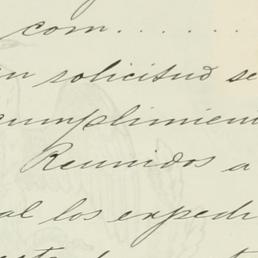 com......
in solicitud se
cumplimien
Reunidos a
al los exped